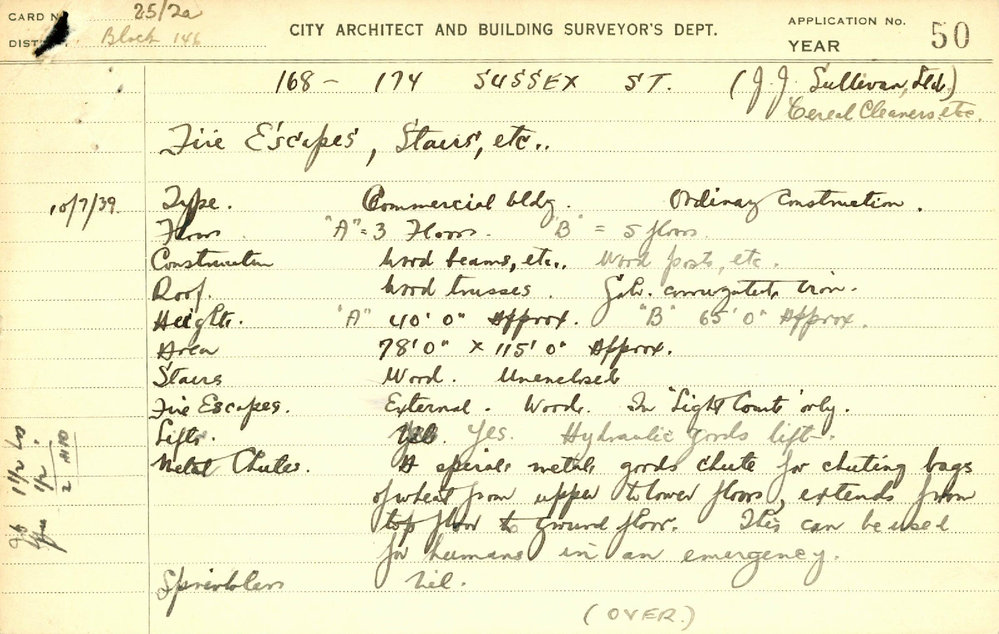 CARD No. 25/2a
DIST. Block 146
CITY ARCHITECT AND BUILDING SURVEYOR'S DEPT.
APPLICATION No.
YEAR
50
168 - 174 SUSSEX ST. (J. J. Sullivan, Ltd.)
Cereal Cleaners, etc.
Fire Escapes, Stairs, etc..
10/7/39. Type. Commercial bldg. Ordinary Construction.
Floors "A" = 3 Floors. "B" = 5 floors.
Construction Wood beams, etc., Wood posts, etc.
Roof. Wood trusses. Galv. corrugated iron.
Heights. "A" 40' 0" Approx. "B" 65' 0" Approx.
Area 78' 0" x 115' 0" Approx.
Stairs Wood. Unenclosed
Fire Escapes. External. Wood. In "Light Courts" only.
Lifts. Yes. Hydraulic goods lift.
Metal Chutes. A spiral metal goods chute for chuting bags
of wheat from upper to lower floors, extends from
top floor to ground floor. This can be used
for humans in an emergency.
Sprinklers Nil.
(OVER.)
1 1/2 hrs
1/2
2